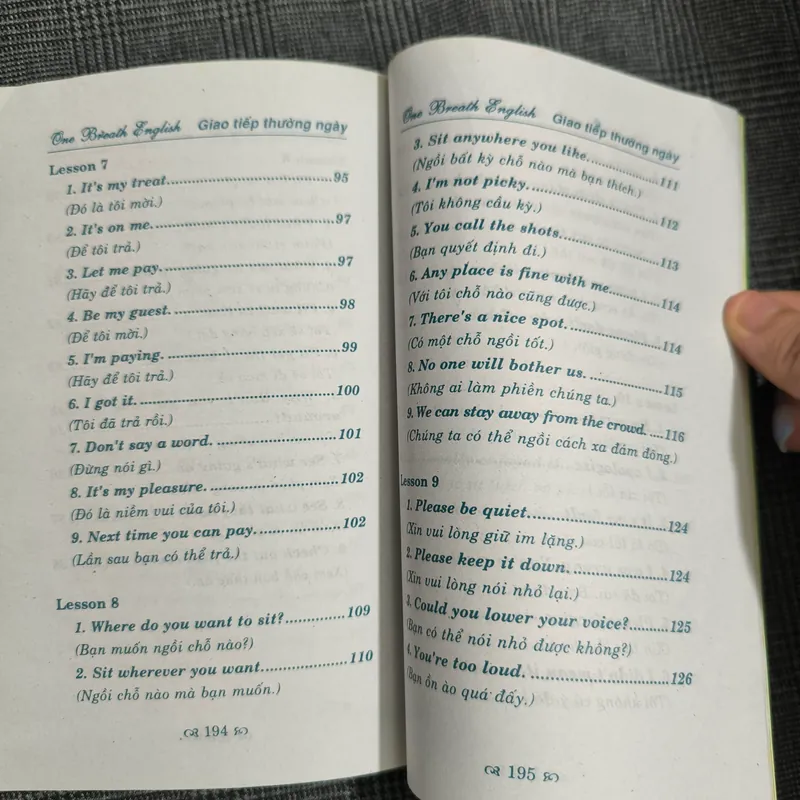 One Breath English Giao tiếp thường ngày
Lesson 7
1. It's my treat. 95
(Đó là tôi mời.)
2. It's on me. 97
(Để tôi trả.)
3. Let me pay. 97
(Hãy để tôi trả.)
4. Be my guest. 98
(Để tôi mời.)
5. I'm paying. 99
(Hãy để tôi trả.)
6. I got it. 100
(Tôi đã trả rồi.)
7. Don't say a word. 101
(Đừng nói gì.)
8. It's my pleasure. 102
(Đó là niềm vui của tôi.)
9. Next time you can pay. 102
(Lần sau bạn có thể trả.)
Lesson 8
1. Where do you want to sit? 109
(Bạn muốn ngồi chỗ nào?)
2. Sit wherever you want. 110
(Ngồi chỗ nào mà bạn muốn.)
194
One Breath English Giao tiếp thường ngày
3. Sit anywhere you like. 111
(Ngồi bất kỳ chỗ nào mà bạn thích.)
4. I'm not picky. 112
(Tôi không cầu kỳ.)
5. You call the shots. 113
(Bạn quyết định đi.)
6. Any place is fine with me. 114
(Với tôi chỗ nào cũng được.)
7. There's a nice spot. 114
(Có một chỗ ngồi tốt.)
8. No one will bother us. 115
(Không ai làm phiền chúng ta.)
9. We can stay away from the crowd. 116
(Chúng ta có thể ngồi cách xa đám đông.)
Lesson 9
1. Please be quiet. 124
(Xin vui lòng giữ im lặng.)
2. Please keep it down. 124
(Xin vui lòng nói nhỏ lại.)
3. Could you lower your voice? 125
(Bạn có thể nói nhỏ được không?)
4. You're too loud. 126
(Bạn ồn ào quá đấy.)
195